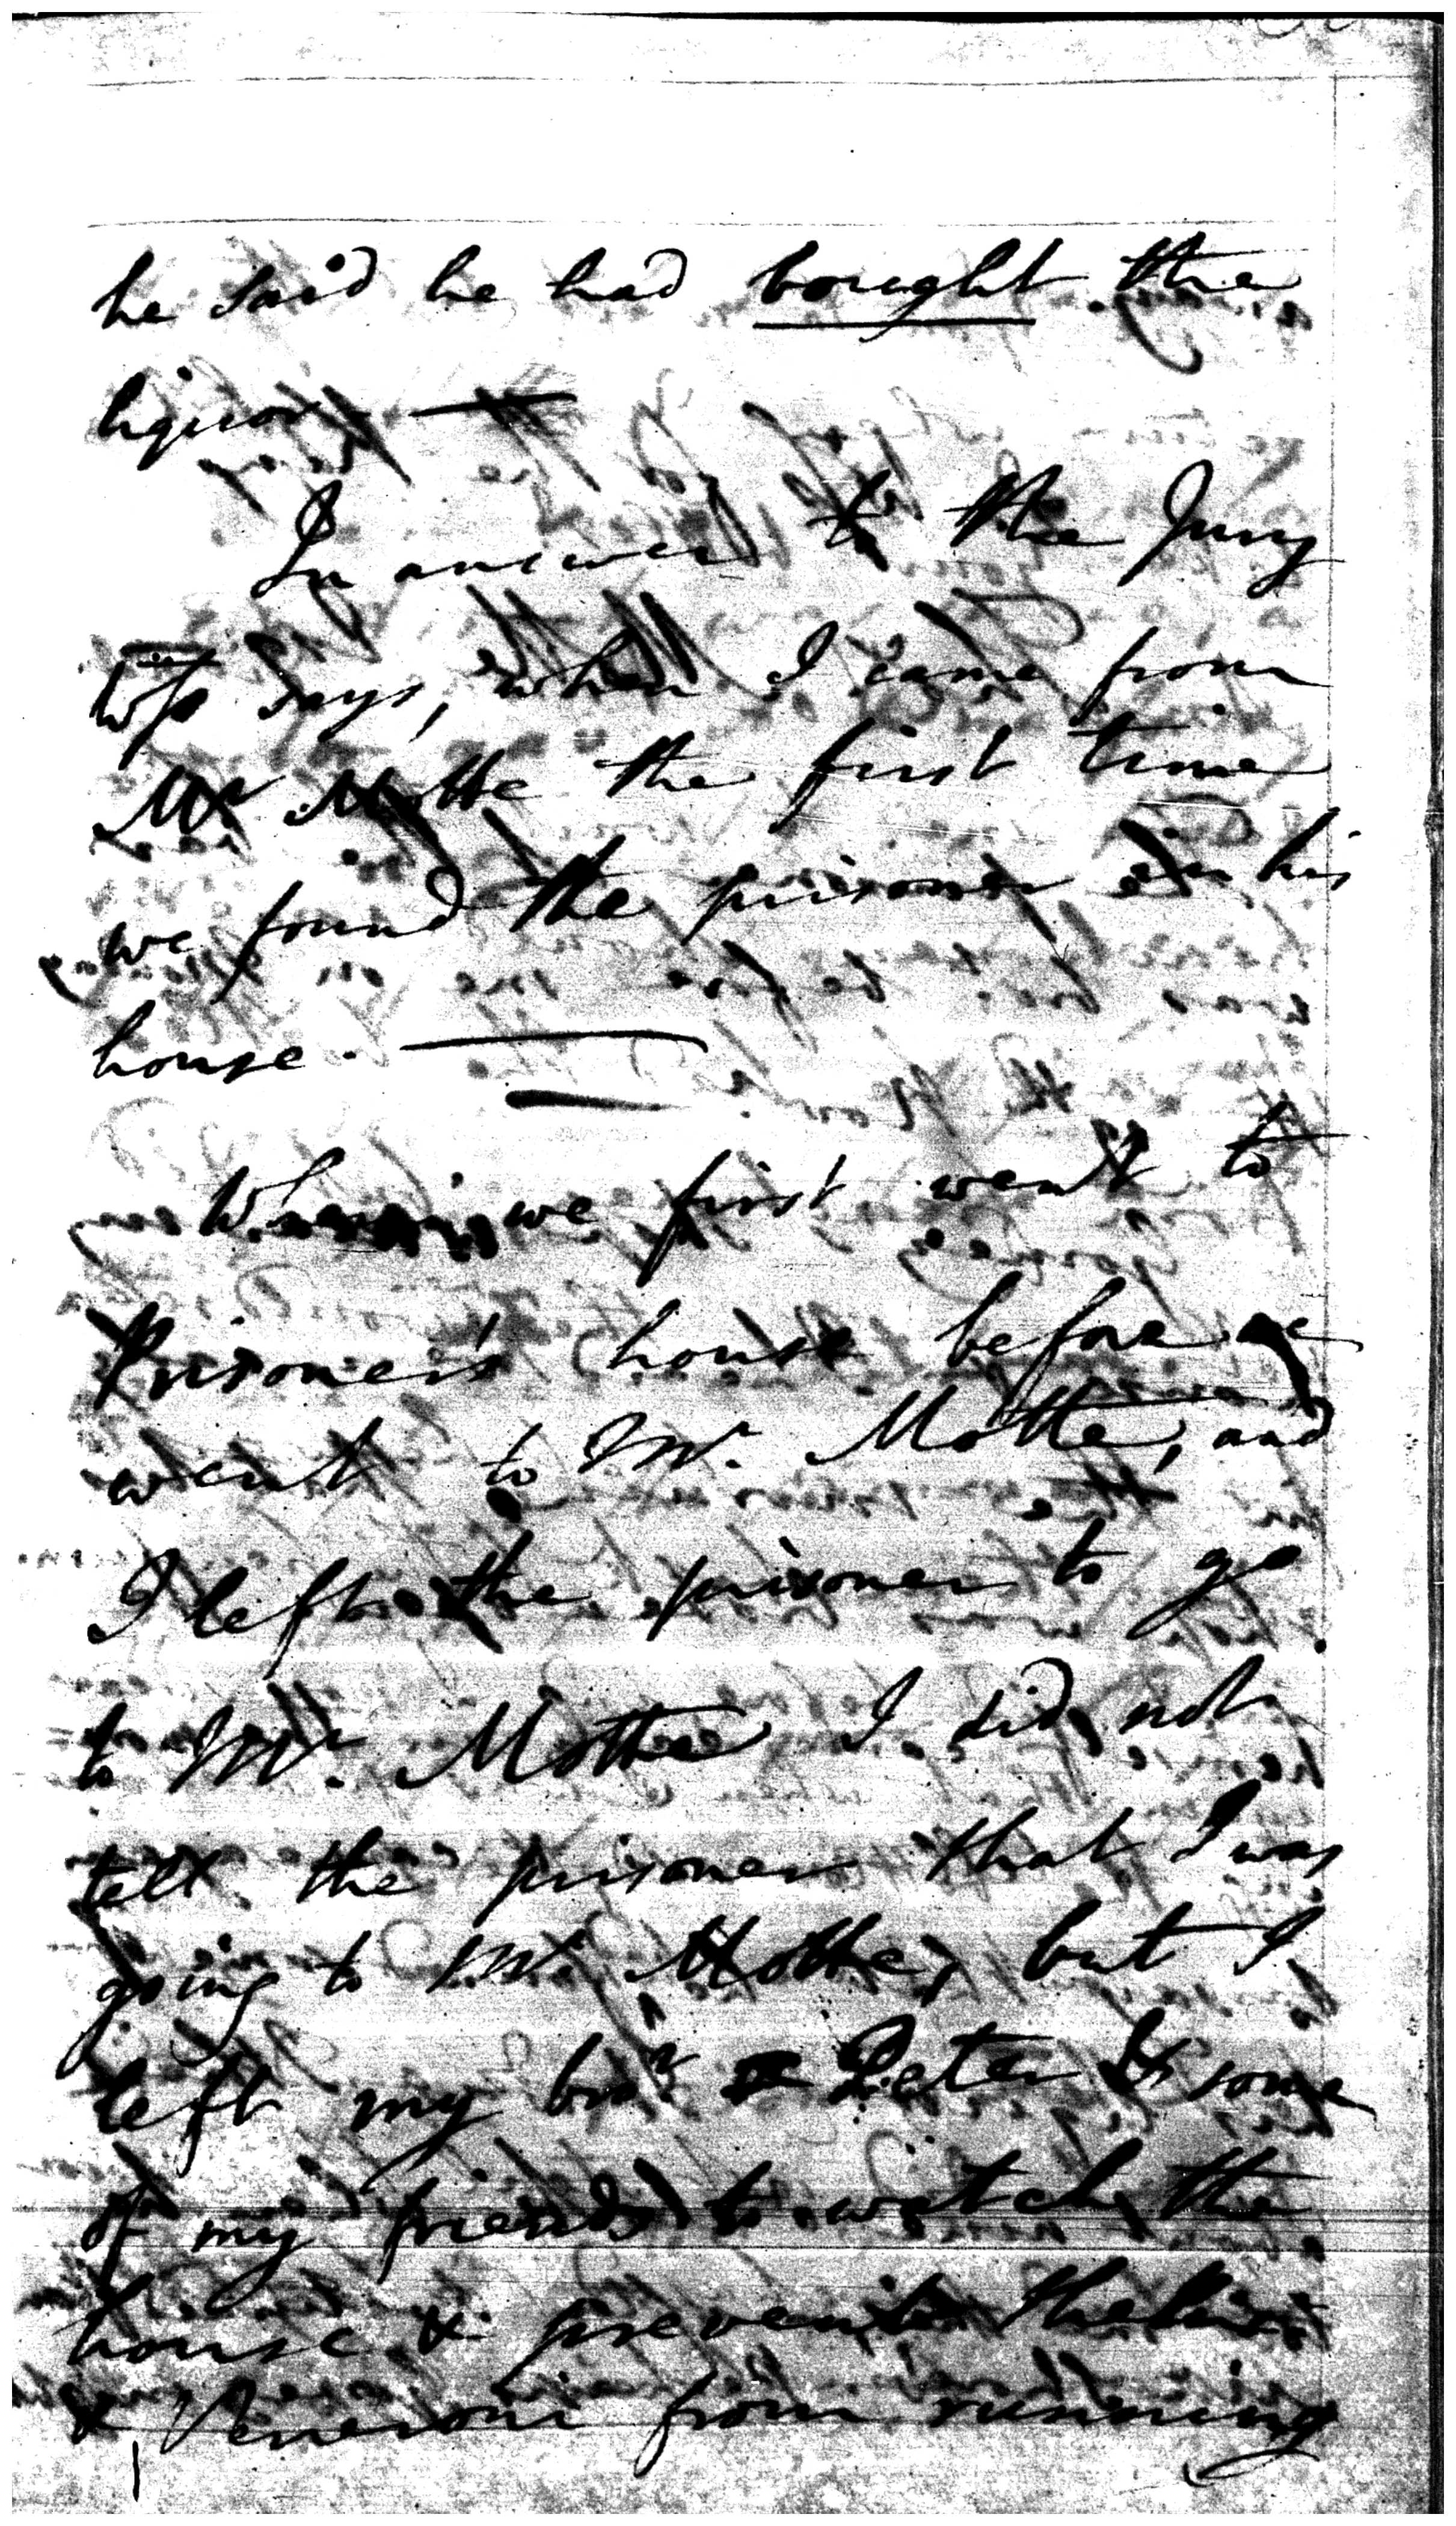 he said he had bought the
liquor. —
In answer to the Jury
wss says, when I came from
Mr Motte the first time
we found the prisoner in his
house. —
When we first went to
Prisoner's house before we
went to Mr. Motte, and
I left the prisoner to go
to Mr. Motte I did not
tell the prisoner that I was
going to Mr. Motte, but I
left my bror Peter & some
of my friends to watch the
house & prevent
& from running